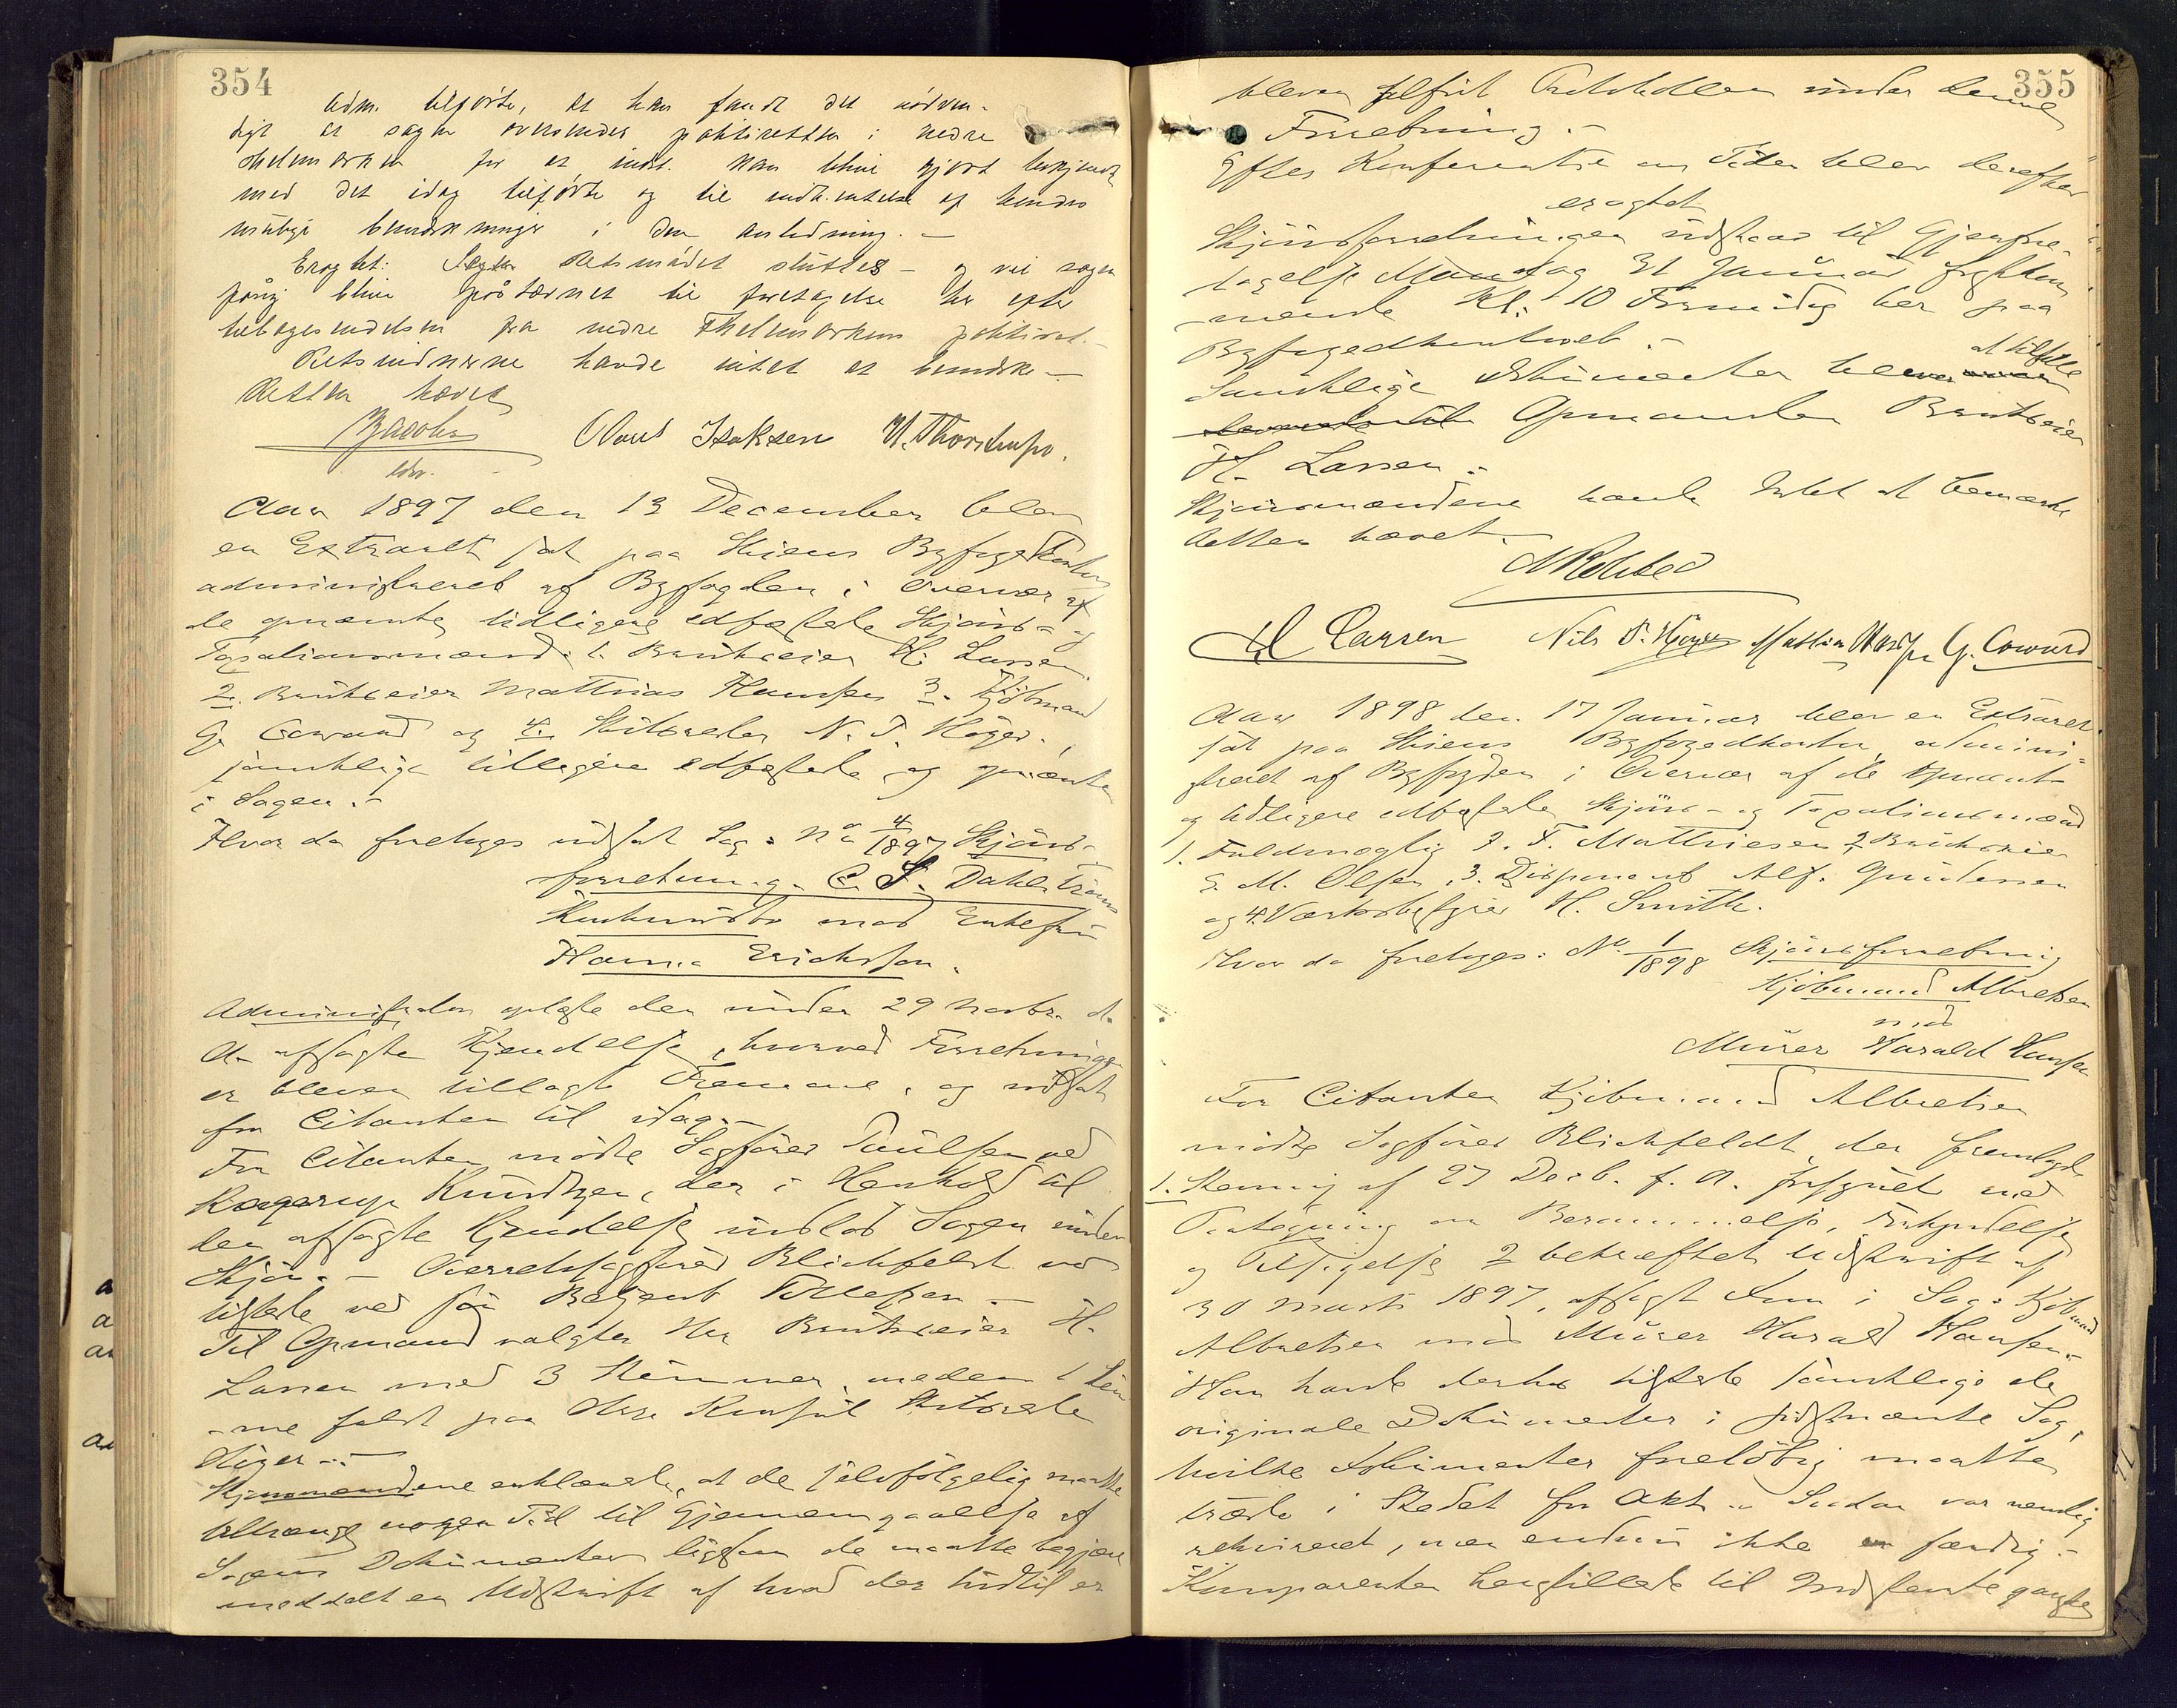 354
Adm. tilførte, at han fandt det nødven-
digt at sagen oversendes politiretten i nedre
Thelemarken for at indst. kan blive gjort bekjendt
med det idag tilførte og til indhentelse af hendes
mulige bemærkninger i den anledning. –
Eragtet: Retsmødet sluttes – og vil sagen
påny blive påtærnet til foretagelse her efter
tilbagesendelsen fra nedre Thelemarkens politiret. –
Retsvidnerne havde intet at bemærke –
Retten hævet
Olaus Isaksen N. Thorstensen.
edsv.
Aar 1897 den 13 December blev
en Extraret sat paa Skiens Byfogedkontor
administreret af Byfogden i Overvær af
de opnævnte, tidligere edfæstede Skjøns- og
Taxationsmænd: 1. Brukseier H. Larsen
2. Brukseier Matthias Hansen 3. Kjøbmand
G. Coward og 4. Skibsreder N. P. Høyer.,
samtlige tidligere edfæstede og opnævnte
i Sagen. –
Hvor da foretoges udsat Sag: No 4/1897 Skjøns-
forretning. C. S. Dahlstrøms
Konkursbo mod Enkefru
Hanna Erichsen.
Administrator oplæste den under 29 Novbr. d.
A. afsagte Kjendelse, hvorved Forretningen
er bleven tillagt Fremme, og udsat
fra Citanten til idag. –
For Citanten mødte Sagfører Paulsen ved
Knudtzen, der i Henhold til
den afsagte Kjendelse indlod Sagen under
Skjøn. – Overretssagfører Blichfeldt var
tilstede ved sin Betjent Tollefsen. –
Til Opmand valgtes Hr Brukseier H.
Larsen med 3 Stemmer, medens 1 Stem
-me faldt paa Herr Konsul Skibsreder
Høyer. –
Skjønsmændene erklærede, at de selvfølgelig maatte
tiltrænge nogen Tid til Gjennemgaaelse af
Sagens Dokumenter ligesom de maatte begjære
meddelt en Udskrift af hvad der hidtil er
355
bleven tilført Protokollen under denne
Forretning. –
Efter Konferentse om Tiden blev derefter
eragtet
Skjønsforretningen udstaar til Gjenfore-
tagelse Mandag 31 Januar førstkom-
mende Kl. 10 Formidag her paa
Byfogedkontoret. –
at tilstille
Samtlige Dokumenter blev
Opmanden Brukseier
H. Larsen. –
Skjønsmændene havde Intet at bemærke
Retten hævet. –
H Larsen Nils P. Høyer Mathias Hansen G. Coward
Aar 1898 den 17 Januar blev en Extraret
sat paa Skiens Byfogedkontor, admini-
streret af Byfogden i Overvær af de opnævnte
og tidligere edfæstede Skjøns- og Taxationsmænd
1. Fuldmægtig J. F. Matthiesen 2. Brukseier
G. M. Olsen, 3. Disponent Alf. Gundersen
og 4. Værksbestyrer H. Smith.
Hvor da foretoges: No. 1/1898 Skjønsforretning
Kjøbmand Albretsen
mod
Murer Harald Hansen
For Citanten Kjøbmand Albretsen
mødte Sagfører Blichfeldt, der fremlagde
1. Stevning af 27 Decb. f. A. forsynet med
Paategning om Berammelse, Forkyndelse
og Tilsigelse 2 bekræftet Udskrift af
30 Marts 1897, afsagt Dom i Sag: Kjøbmand
Albretsen mod Murer Harald Hansen. –
Han havde derhos tilstede samtlige de
originale Dokumenter i sidstnævnte Sag,
hvilke Dokumenter foreløbig maatte
træde i Stedet for Akt. – Saadan var nemlig
rekvireret, men endnu ikke færdig. –
Komparenten henstillede til Indstevnte ganske